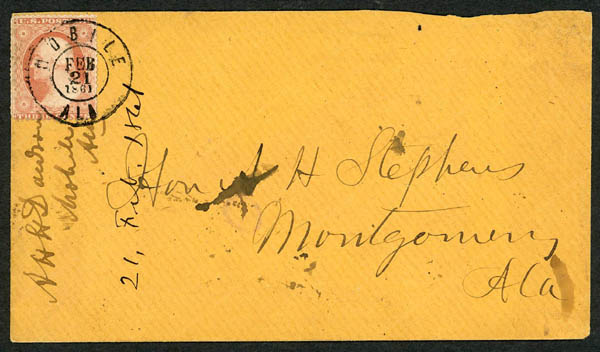 U.S. POST
MOBILE
FEB
21
1861
ALA
Hon A H Stephens
Montgomery
Ala
21, Feb. 1861
Mobile
Ala